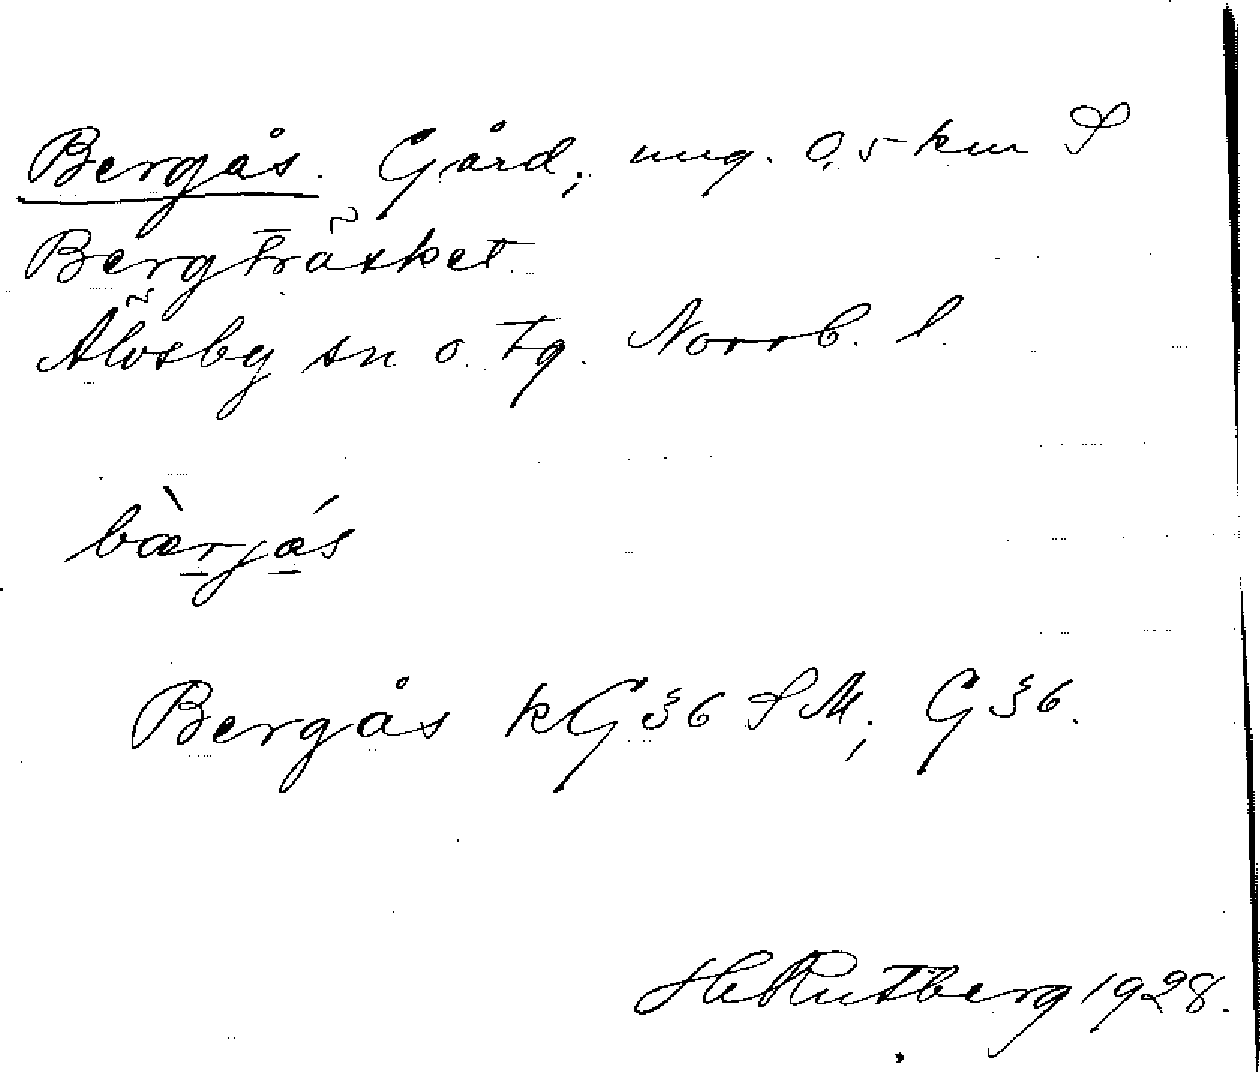 Bergås. Gård, ung. 0,5 km S
Bergträsket.
Älvsby sn o. tg. Norrb. l.
bæ̀rjás
Bergås kG36 SM; G36.
H Rutberg 1928.